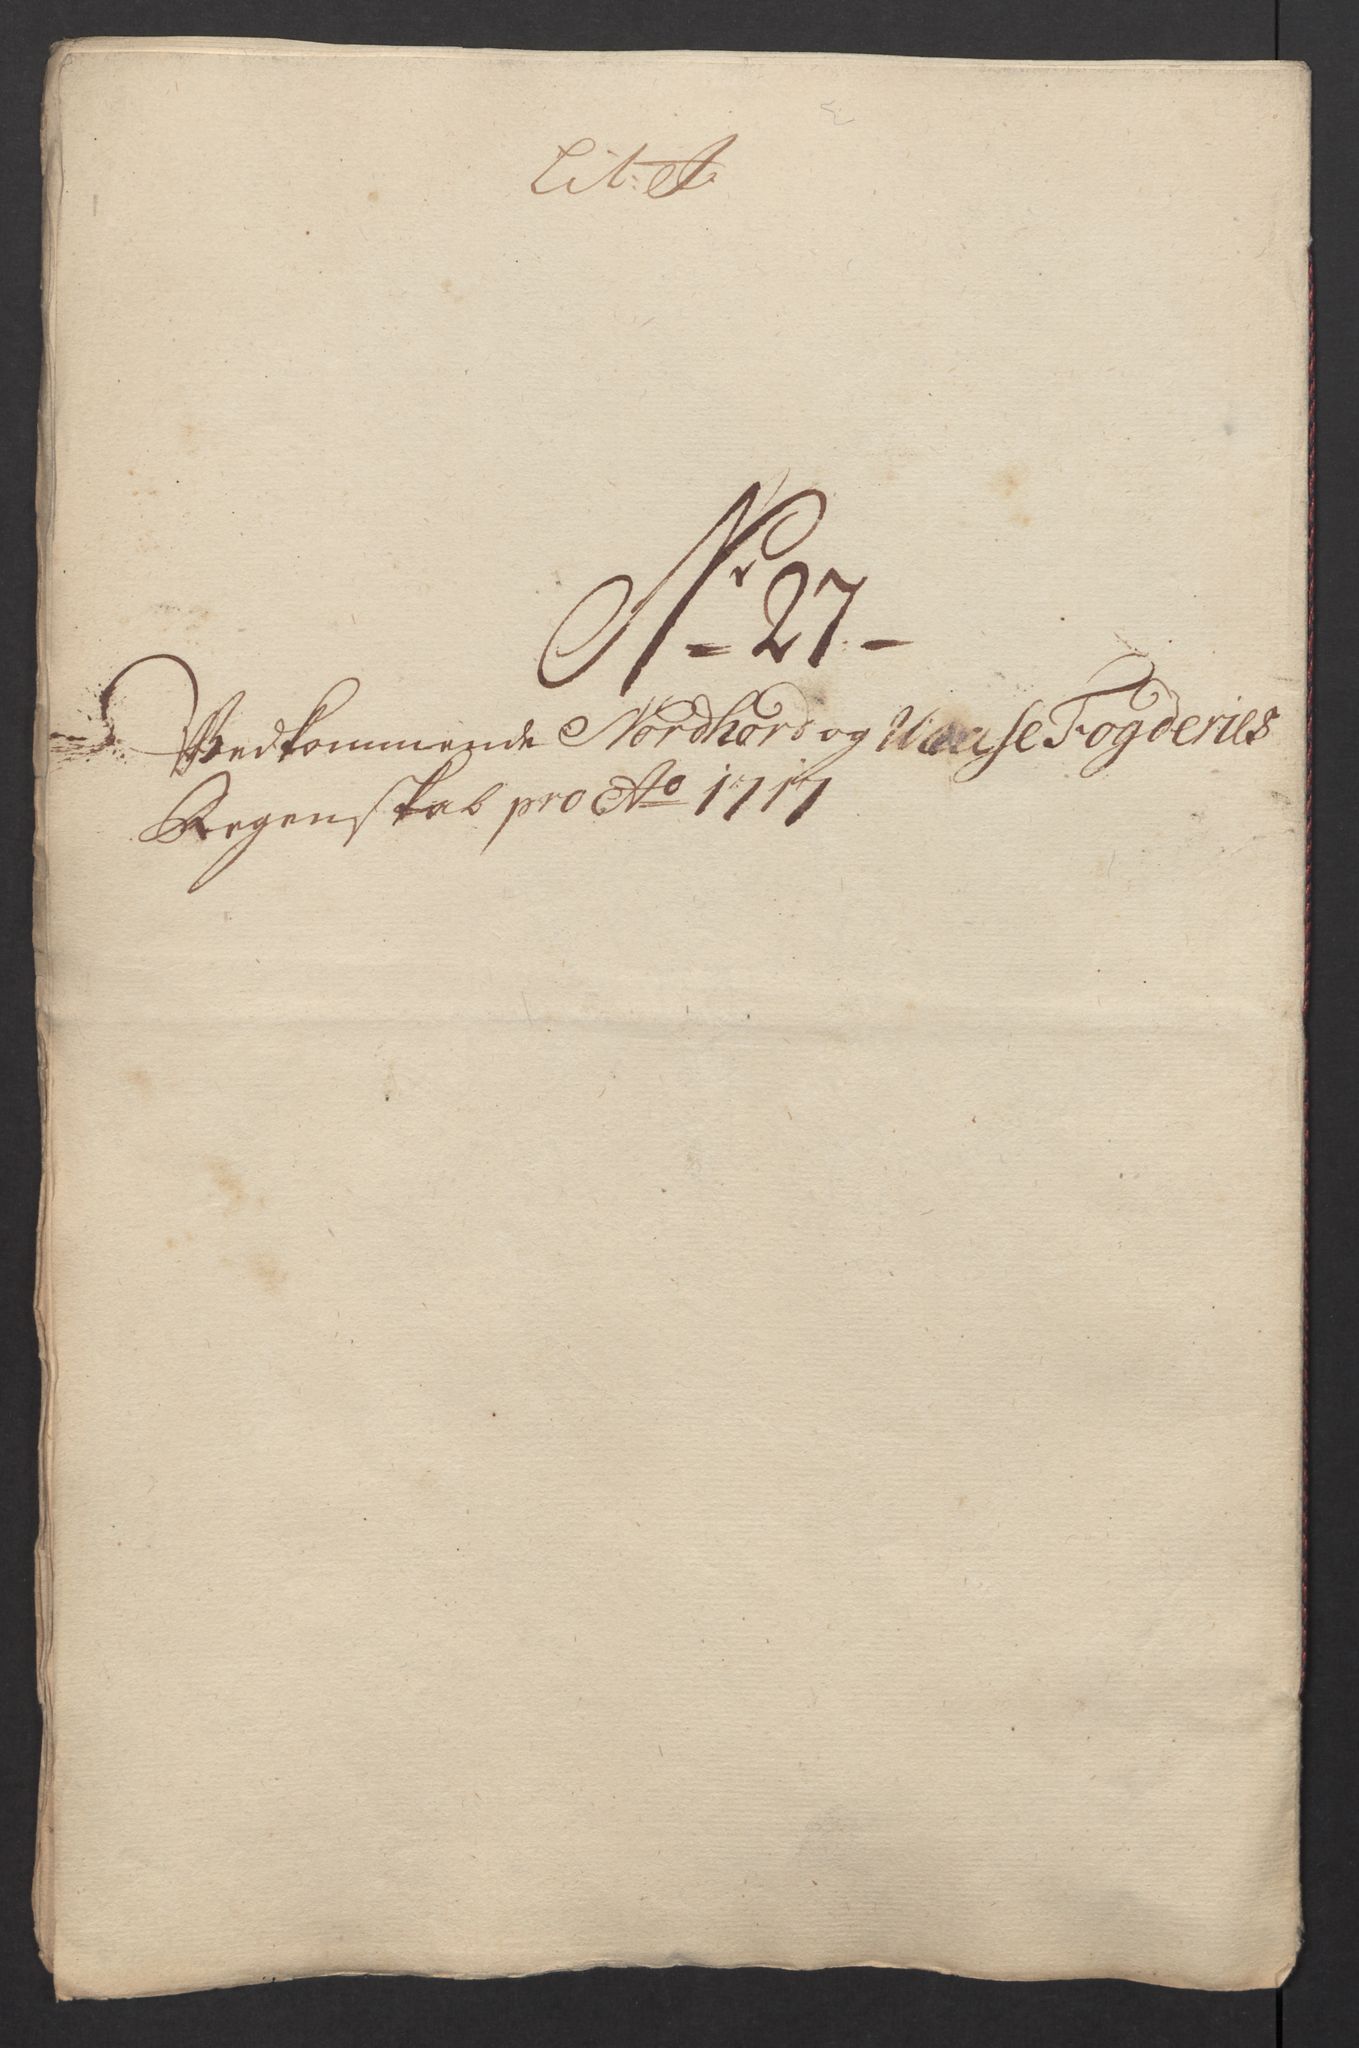 Lit: A:
Nr 27
Vedkommende Nordhord og Fogderies
Regenskab pro Ao 1717